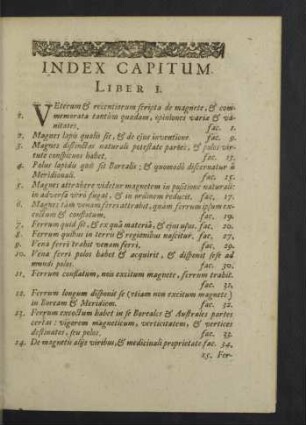 INDEX CAPITUM.
LIBER I.
1. VEterum & recentiorum scripta de magnete, & com-
memorata tantùm quædam, opiniones variæ & va-
nitates. fac. 1.
2. Magnes lapis qualis sit, & de ejus inventione. fac. 9.
3. Magnes distinctas naturali potestate partes, & polos vir-
tute conspicuos habet. fac. 13.
4. Polus lapidis quis sit Borealis; & quomodò discernatur à
Meridionali. fac. 15.
5. Magnes attrahere videtur magnetem in positione naturali:
in adversâ verò fugat, & in ordinem reducit. fac. 17.
6. Magnes tàm venam ferri attrahit, quàm ferrum ipsum ex-
coctum & conflatum. fac. 19.
7. Ferrum quid sit, & ex quâ materiâ, & ejus usus. fac. 20.
8. Ferrum quibus in terris & regionibus nascitur. fac. 27.
9. Vena ferri trahit venam ferri. fac. 29.
10. Vena ferri polos habet & acquirit, & disponit sese ad
mundi polos. fac. 30.
11. Ferrum conflatum, non excitum magnete, ferrum trahit.
fac. 31.
12. Ferrum longum disponit se (etiam non excitum magnete)
in Boream & Meridiem. fac. 32.
13. Ferrum excoctum habet in se Boreales & Australes partes
certas: vigorem magneticum, verticitatem, & vertices
destinatos, seu polos. fac. 33.
14. De magnetis aliis viribus, & medicinali proprietate fac. 34.
25. Fer-